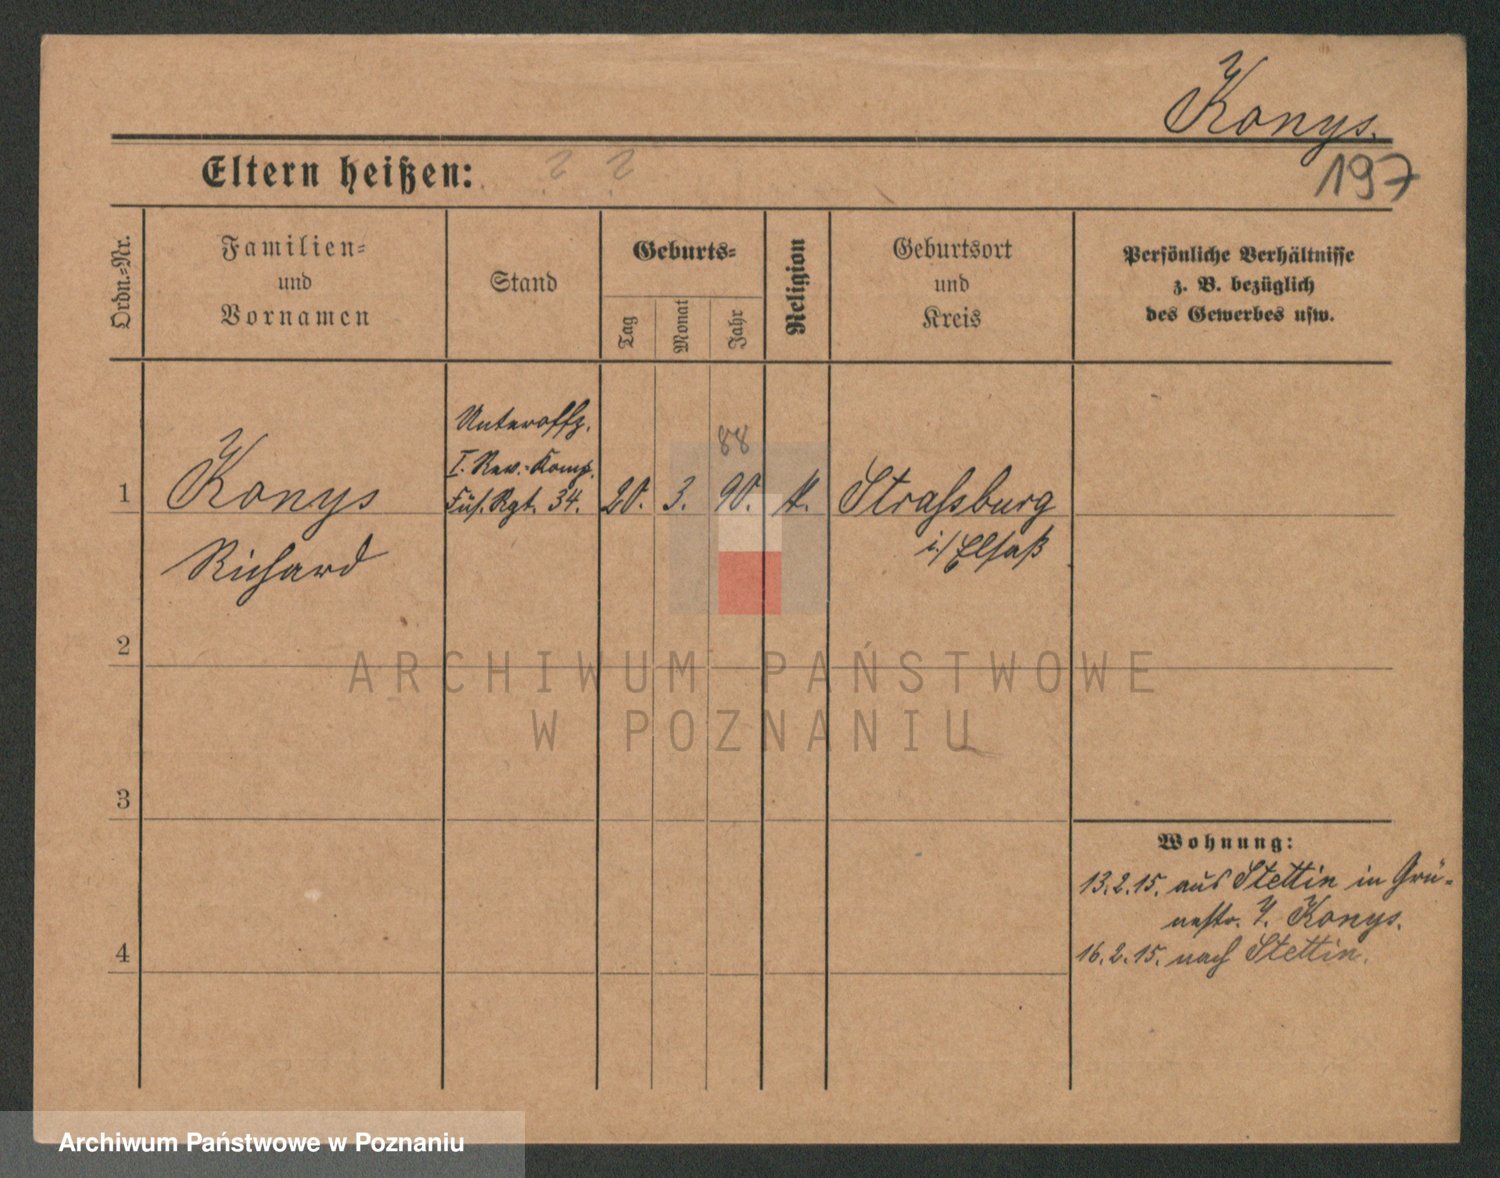 Konys.
197
Eltern heißen: ? ?
Ordn.=Nr.
Familien=
und
Vornamen
Stand
Geburts=
Tag
Monat
Jahr
Religion
Geburtsort
und
Kreis
Persönliche Verhältnisse
z. B. bezüglich
des Gewerbes usw.
1
Konys
Richard
Unteroffz.
I. Rev.-Komp.
Füs. Rgt. 34.
20.
3.
88
90.
Strassburg
i./Elsaß
2
3
4
Wohnung:
13.2.15. aus Stettin in Grü-
nestr. 7. Konys.
16.2.15. nach Stettin.
ARCHIWUM PAŃSTWOWE
W POZNANIU
Archiwum Państwowe w Poznaniu